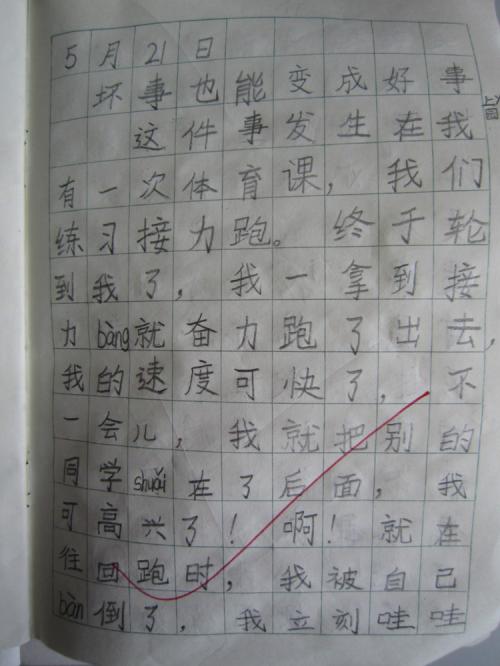 5月21日
坏事也能变成好事
这件事发生在我
有一次体育课，我们
练习接力跑。终于轮
到我了，我一拿到接
力bàng就奋力跑了出去，
我的速度可快了，不
一会儿，我就把别的
同学shuǎi在了后面，我
可高兴了！啊！就在
往回跑时，我被自己
bàn倒了，我立刻哇哇